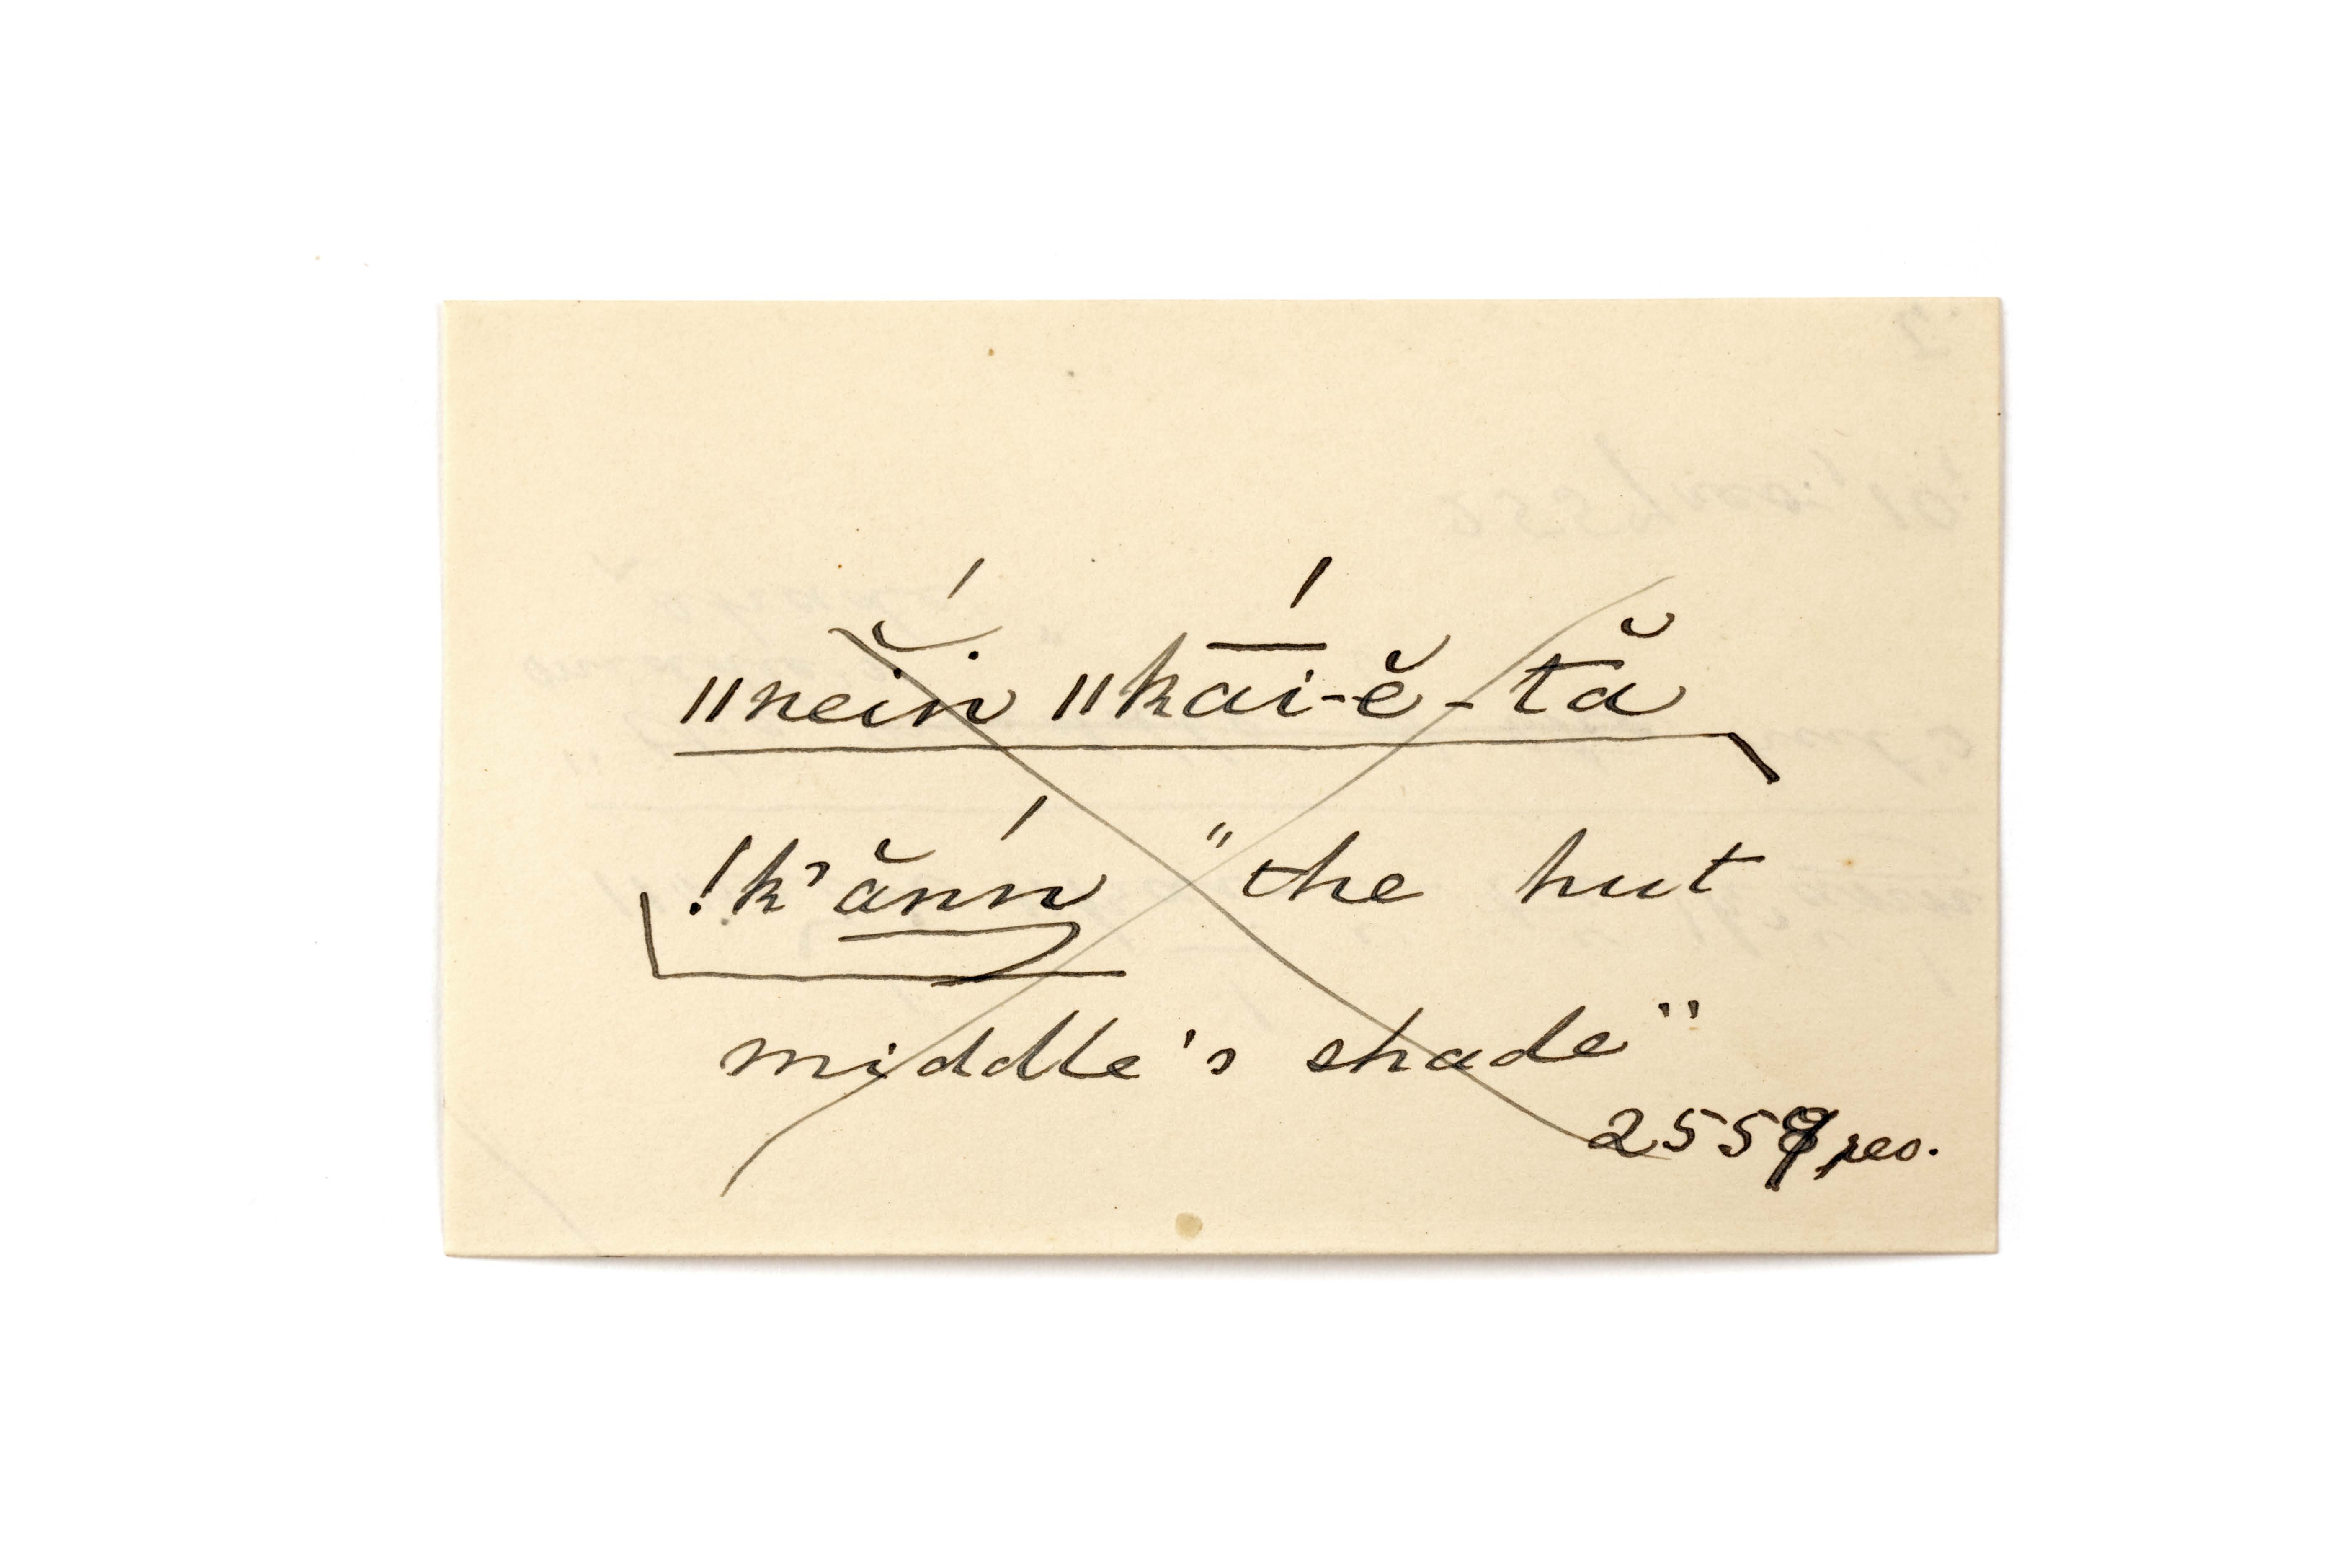 ǁnĕín ǁkā́i-ĕ-tă
!k'ănń "the hut
middle's shade"
2559 rev.